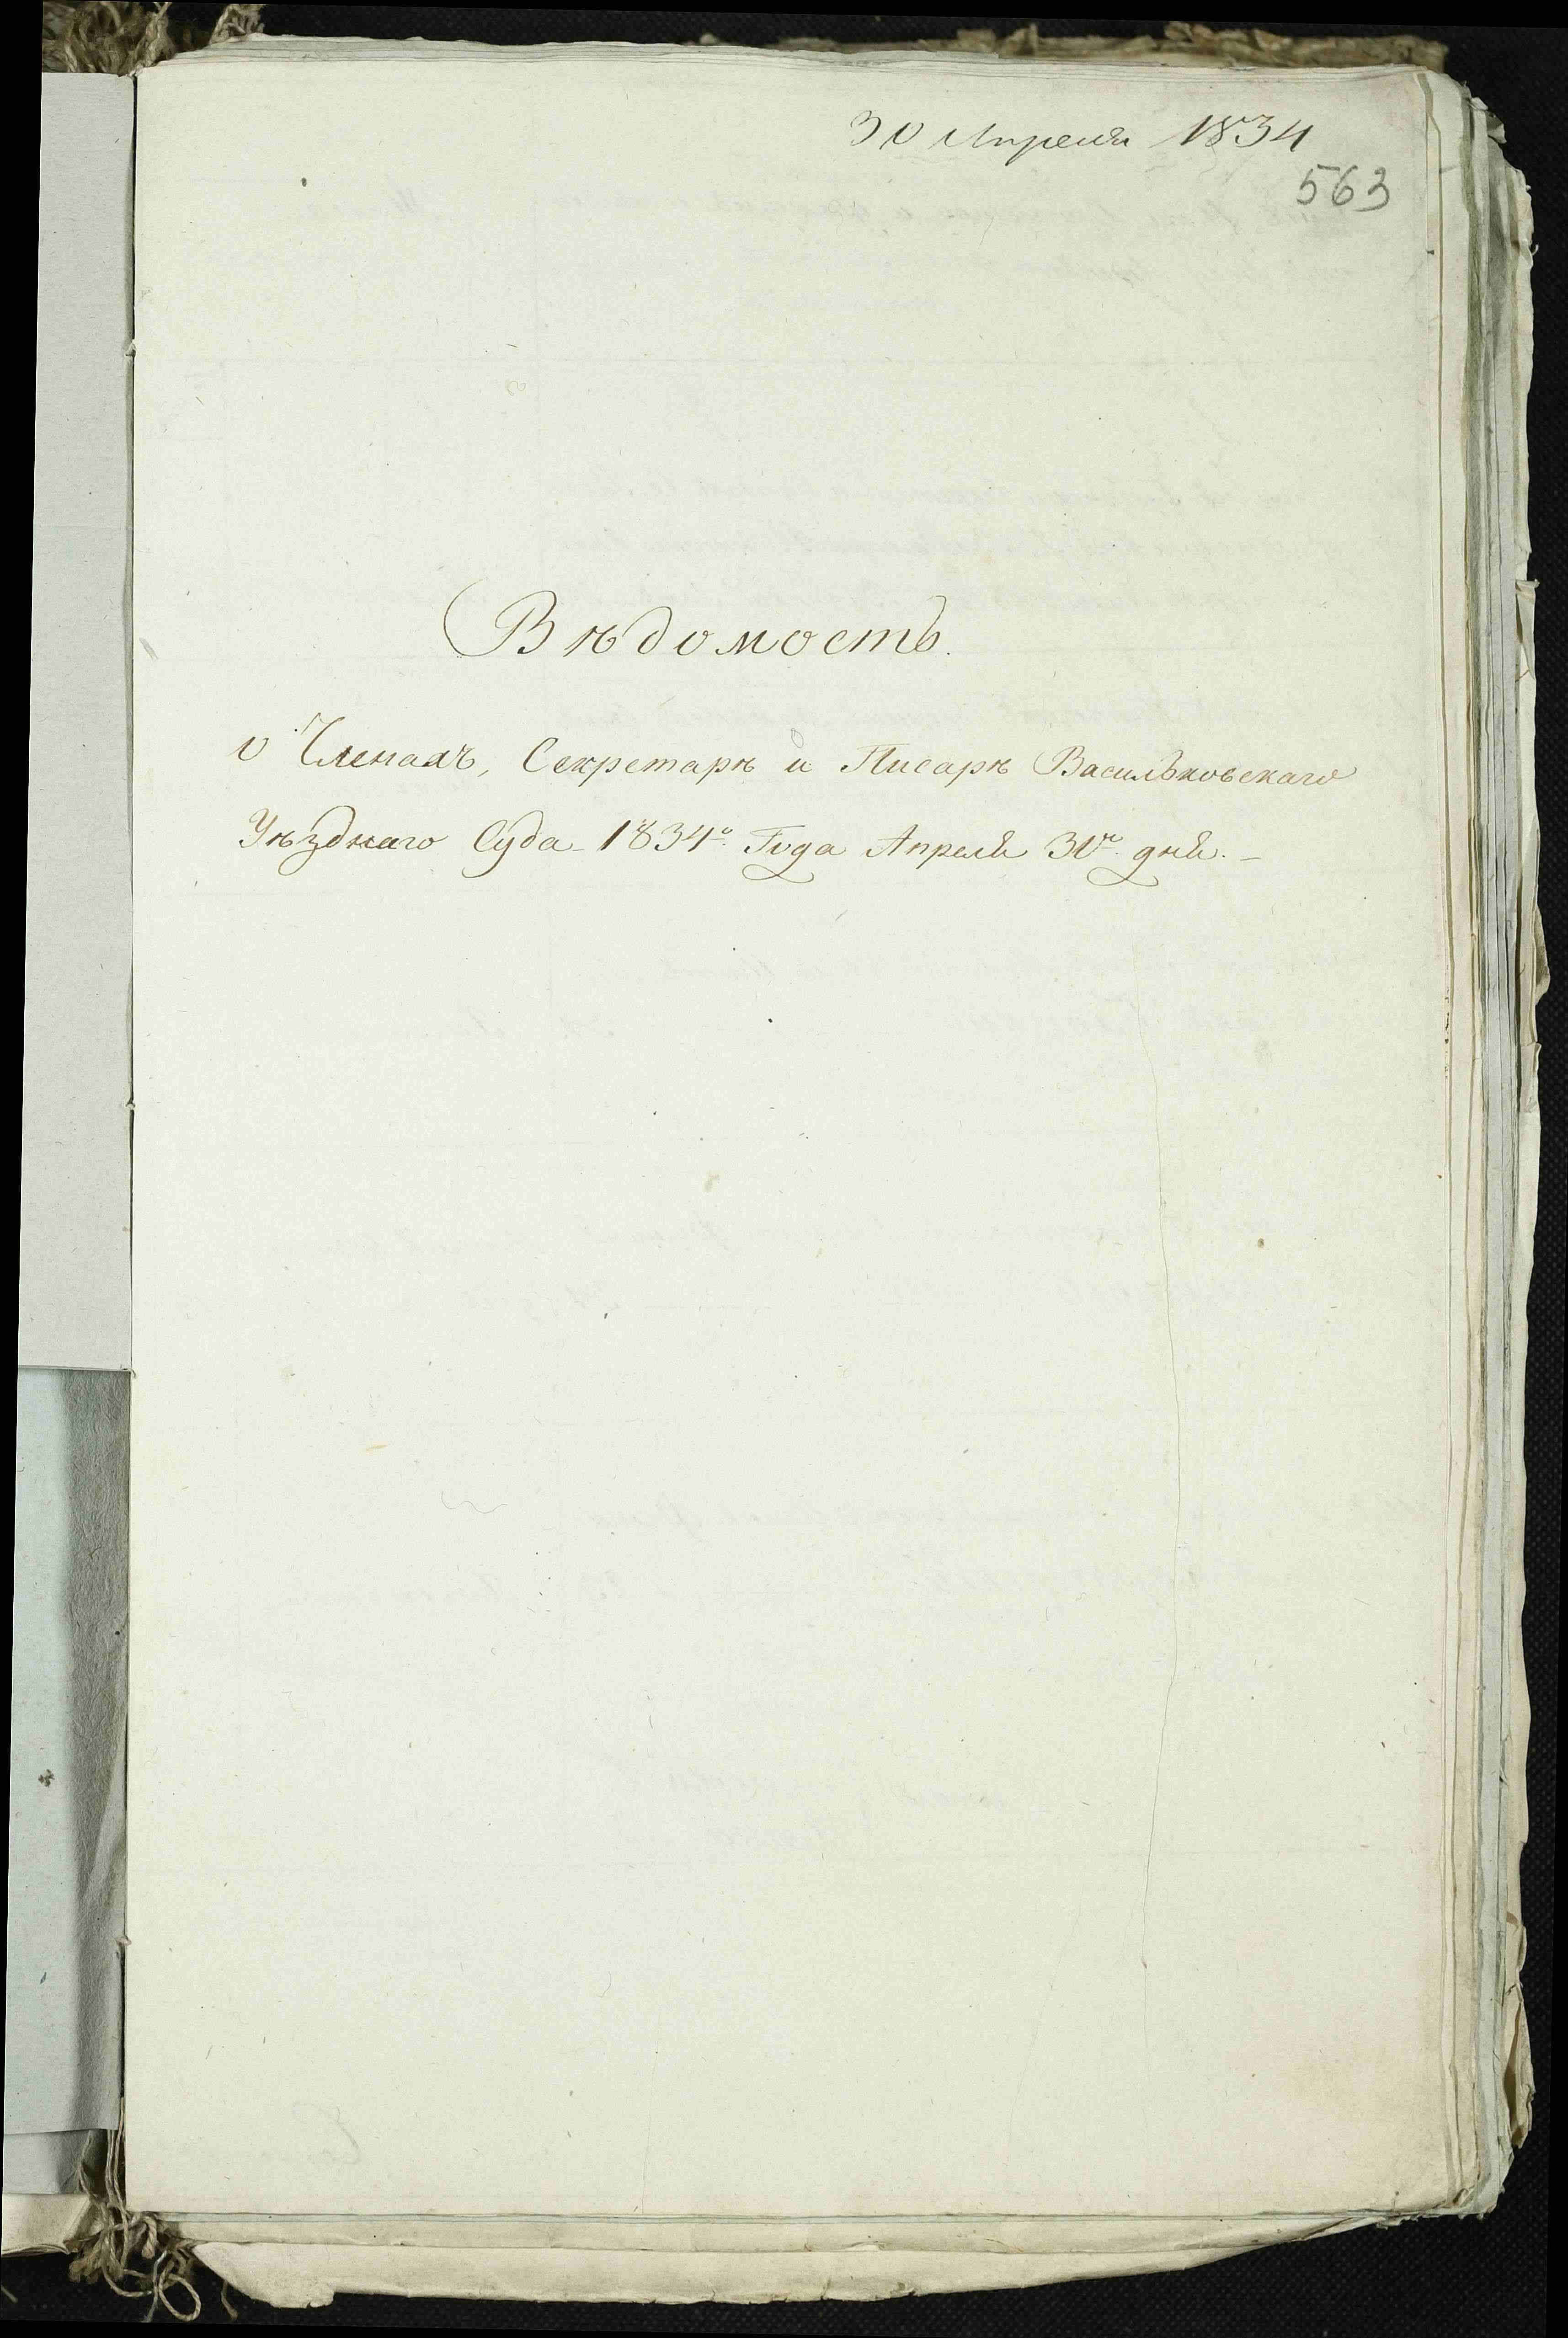 30 Апреля 1834
563
Вѣдомость.
о Членахъ, Секретарѣ и Писарѣ Васильковскаго
Уѣзднаго Суда 1834го Года Апреля 30го дня. –